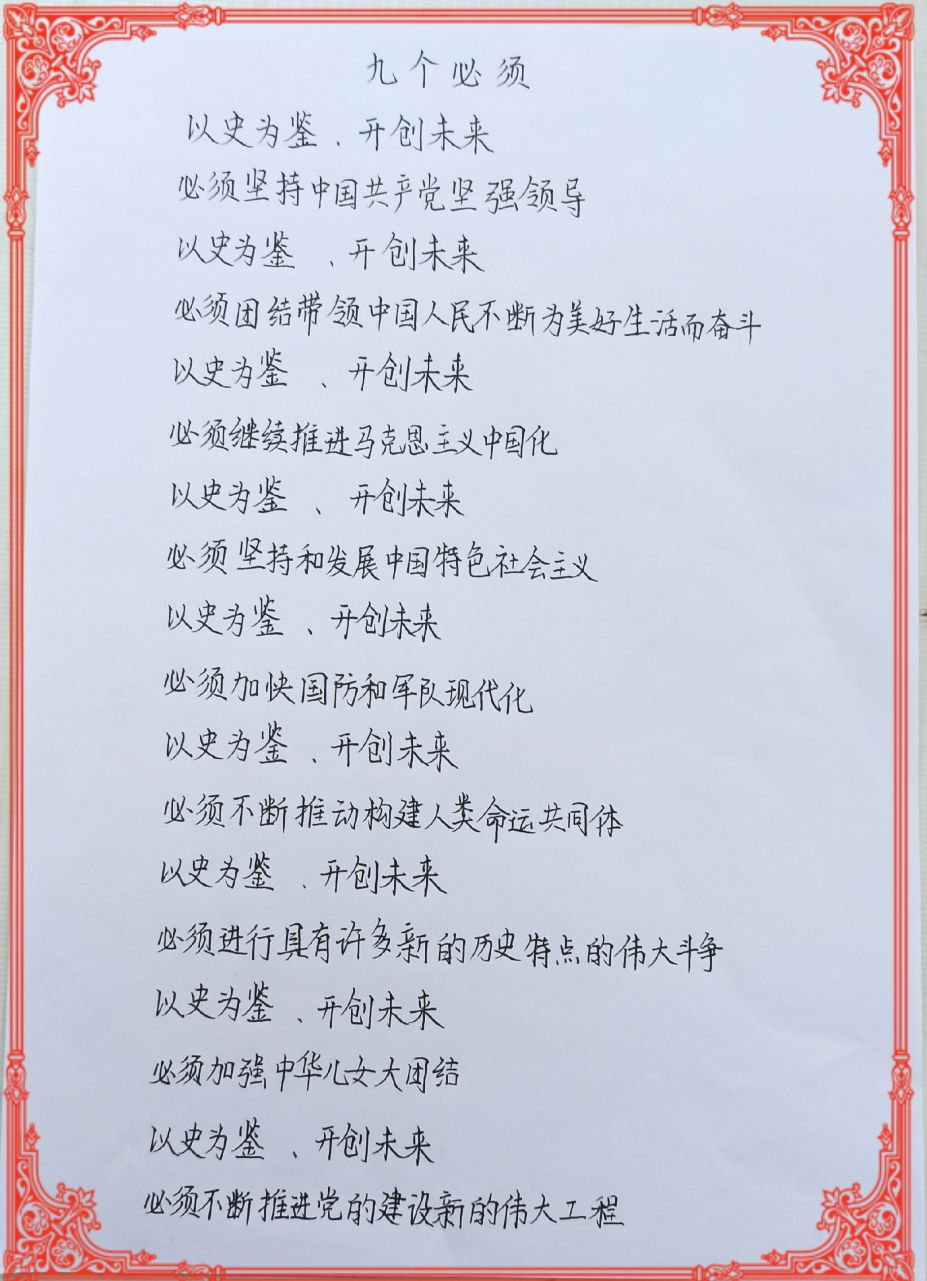 九个必须
以史为鉴、开创未来
必须坚持中国共产党坚强领导
以史为鉴、开创未来
必须团结带领中国人民不断为美好生活而奋斗
以史为鉴、开创未来
必须继续推进马克思主义中国化
以史为鉴、开创未来
必须坚持和发展中国特色社会主义
以史为鉴、开创未来
必须加快国防和军队现代化
以史为鉴、开创未来
必须不断推动构建人类命运共同体
以史为鉴、开创未来
必须进行具有许多新的历史特点的伟大斗争
以史为鉴、开创未来
必须加强中华儿女大团结
以史为鉴、开创未来
必须不断推进党的建设新的伟大工程